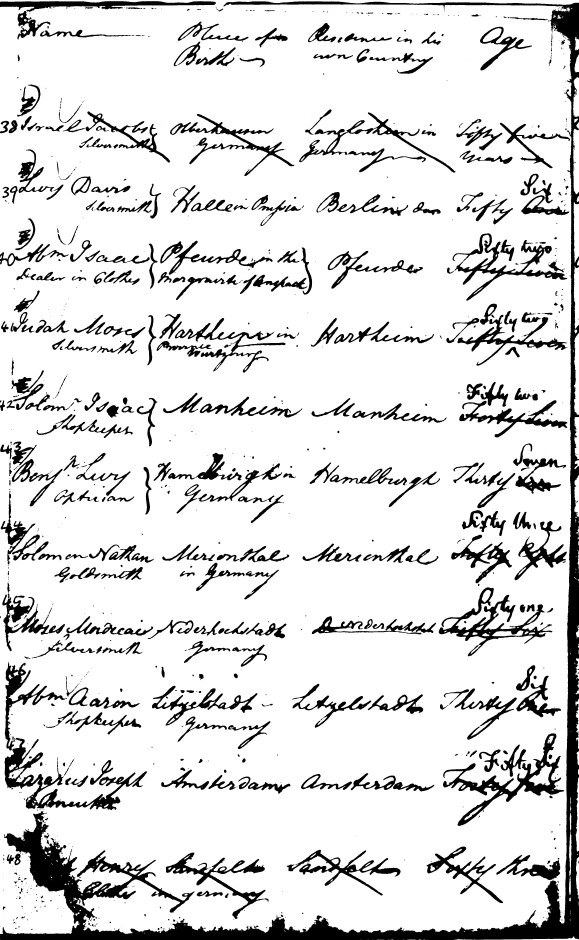 Name Place of Birth Residence in his own Country Age
38 Israel Jacobs Oberhausen Langloshim in Fifty five
Silversmith Germany Germany years
39 Levy Davis Halle in Prussia Berlin Fifty Six
Silversmith
40 Abm Isaac Pfeurde in the Pfeurde Fifty Seven Sixty two
Dealer in Clothes Margravite of Anspach
41 Judah Moses Hartheim in Hartheim Fifty Seven Sixty two
Silversmith Province of Wurtzburg
42 Solomn Isaac Manheim Manheim Forty Seven Fifty two
Shopkeeper
43 Benjn Levy Hamelburgh in Hamelburgh Thirty Seven
Optician Germany
44 Solomon Nathan Merionthal Merionthal Fifty Eight Sixty three
Goldsmith in Germany
45 Moses Mordecai Niderhochstadt Niderhochstadt Fifty Six Sixty one
Silversmith Germany
46 Abm Aaron Litzelstadt Litzelstadt Thirty One Six
Shopkeeper Germany
47 Lazarus Joseph Amsterdam Amsterdam Forty Fifty Six
48 Henry Sandfalt Sandfalt Sixty three
Clothes in germany